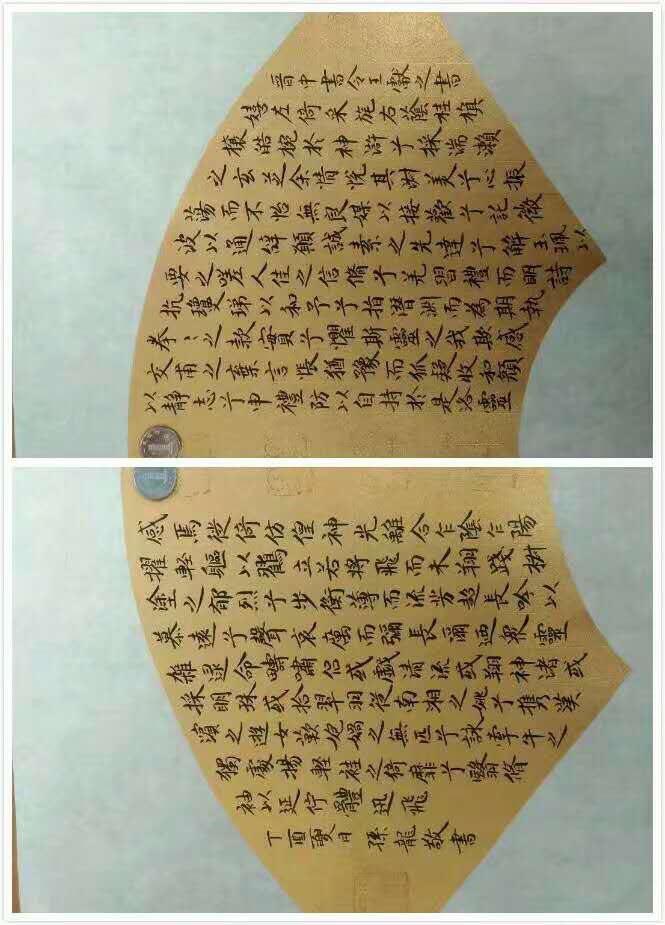 晉中書令王獻之書
嬉左倚采旄右蔭桂旗
攘皓腕於神滸兮採湍瀨
之玄芝余情悅其淑美兮心振
蕩而不怡無良媒以接歡兮託微
波以通辭願誠素之先達兮解玉珮以
要之嗟人佳之信脩兮羌習禮而明詩
抗瓊珶以和予兮指潛淵而為期執
拳〻之款實兮懼斯靈之我欺感
交甫之棄言悵猶豫而狐疑收和顏
以靜志兮申禮防以自持於是洛靈
感焉徙倚仿偟神光離合乍陰乍陽
擢輕軀以鶴立若將飛而未翔踐椒
塗之郁烈兮步衡薄而流芳超長吟以
慕遠兮聲哀厲而彌長爾迺眾靈
雜遝命疇嘯侶或戲清流或翔神渚或
採明珠或拾翠羽從南湘之姚兮攜漢
濱之遊女歎匏媧之無匹兮詠牽牛之
獨處揚輕袿之猗靡兮翳脩
袖以延佇體迅飛
丁酉夏日 孫龍敬書